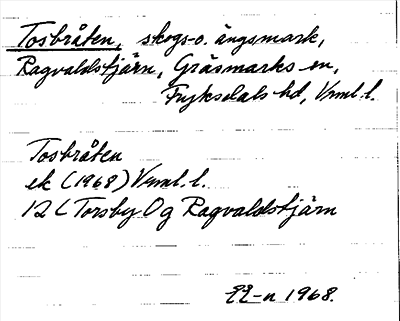 Tosbråten, skogs- o. ängsmark,
Ragvaldstjärn, Gräsmarks sn,
Fryksdals hd, Vrml. l.
Tosbråten
ek (1968) Vrml. l.
12 C Torsby O g Ragvaldstjärn
1968.